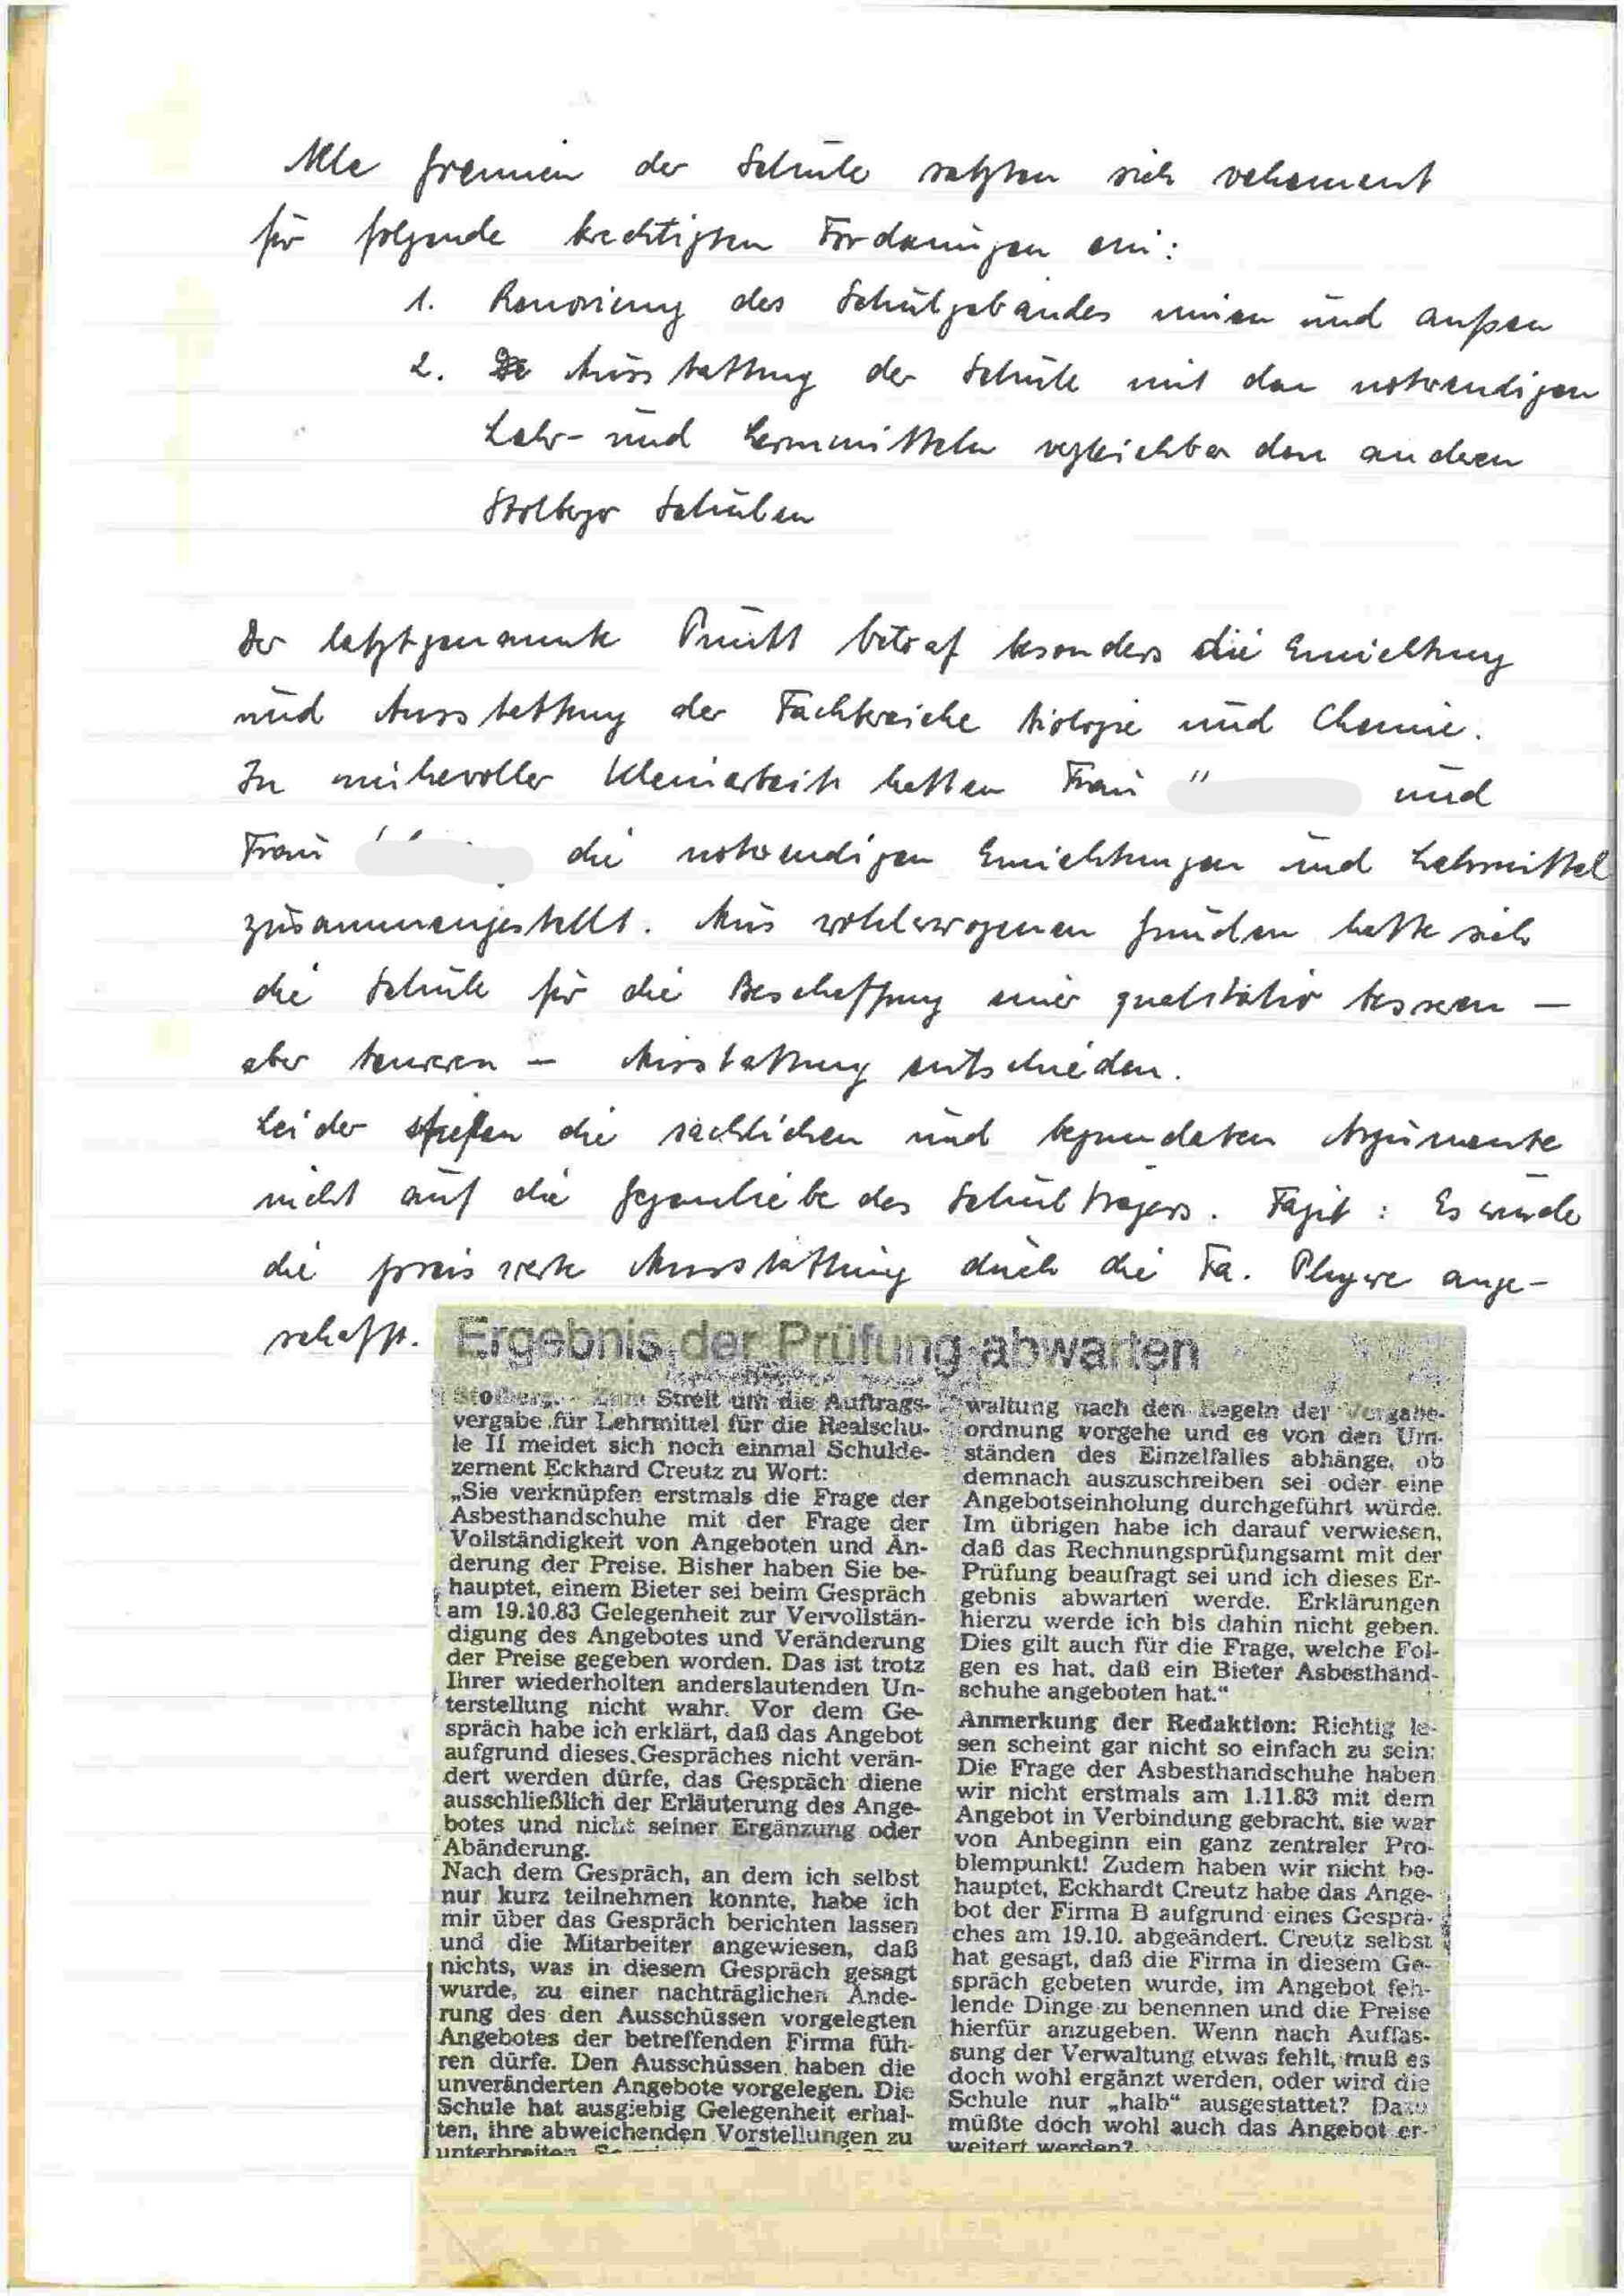 Alle Gremien der Schule setzten sich vehement
für folgende berechtigten Forderungen ein:
1. Renovierung des Schulgebäudes innen und außen
2. Ausstattung der Schule mit den notwendigen
Lehr- und Lernmitteln vergleichbar den anderen
Stolberger Schulen
Der letztgenannte Punkt betraf besonders die Einrichtung
und Ausstattung der Fachbereiche Biologie und Chemie.
In mühevoller Kleinarbeit hatten Frau und
Frau die notwendigen Einrichtungen und Lehrmittel
zusammengestellt. Aus wohlerwogenen Gründen hatte sich
die Schule für die Beschaffung einer qualitativ besseren –
aber teureren – Ausstattung entschieden.
Leider stießen die sachlichen und begründeten Argumente
nicht auf die Gegenliebe des Schulträgers. Fazit: Es wurde
die preiswerte Ausstattung durch die Fa. Phywe ange-
schafft.
Ergebnis der Prüfung abwarten
Stolberg. – Zum Streit um die Auftrags-
vergabe für Lehrmittel für die Realschu-
le II meldet sich noch einmal Schulde-
zernent Eckhard Creutz zu Wort:
„Sie verknüpfen erstmals die Frage der
Asbesthandschuhe mit der Frage der
Vollständigkeit von Angeboten und Än-
derung der Preise. Bisher haben Sie be-
hauptet, einem Bieter sei beim Gespräch
am 19.10.83 Gelegenheit zur Vervollstän-
digung des Angebotes und Veränderung
der Preise gegeben worden. Das ist trotz
Ihrer wiederholten anderslautenden Un-
terstellung nicht wahr. Vor dem Ge-
spräch habe ich erklärt, daß das Angebot
aufgrund dieses Gespräches nicht verän-
dert werden dürfe, das Gespräch diene
ausschließlich der Erläuterung des Ange-
botes und nicht seiner Ergänzung oder
Abänderung.
Nach dem Gespräch, an dem ich selbst
nur kurz teilnehmen konnte, habe ich
mir über das Gespräch berichten lassen
und die Mitarbeiter angewiesen, daß
nichts, was in diesem Gespräch gesagt
wurde, zu einer nachträglichen Ände-
rung des den Ausschüssen vorgelegten
Angebotes der betreffenden Firma füh-
ren dürfe. Den Ausschüssen haben die
unveränderten Angebote vorgelegen. Die
Schule hat ausgiebig Gelegenheit erhal-
ten, ihre abweichenden Vorstellungen zu
unterbreiten.
waltung nach den Regeln der Vergabe-
ordnung vorgehe und es von den Um-
ständen des Einzelfalles abhänge, ob
demnach auszuschreiben sei oder eine
Angebotseinholung durchgeführt würde.
Im übrigen habe ich darauf verwiesen,
daß das Rechnungsprüfungsamt mit der
Prüfung beaufragt sei und ich dieses Er-
gebnis abwarten werde. Erklärungen
hierzu werde ich bis dahin nicht geben.
Dies gilt auch für die Frage, welche Fol-
gen es hat, daß ein Bieter Asbesthand-
schuhe angeboten hat.“
Anmerkung der Redaktion: Richtig le-
sen scheint gar nicht so einfach zu sein:
Die Frage der Asbesthandschuhe haben
wir nicht erstmals am 1.11.83 mit dem
Angebot in Verbindung gebracht, sie war
von Anbeginn ein ganz zentraler Pro-
blempunkt! Zudem haben wir nicht be-
hauptet, Eckhardt Creutz habe das Ange-
bot der Firma B aufgrund eines Gesprä-
ches am 19.10. abgeändert. Creutz selbst
hat gesagt, daß die Firma in diesem Ge-
spräch gebeten wurde, im Angebot feh-
lende Dinge zu benennen und die Preise
hierfür anzugeben. Wenn nach Auffas-
sung der Verwaltung etwas fehlt, muß es
doch wohl ergänzt werden, oder wird die
Schule nur „halb“ ausgestattet? Dazu
müßte doch wohl auch das Angebot er-
weitert werden?